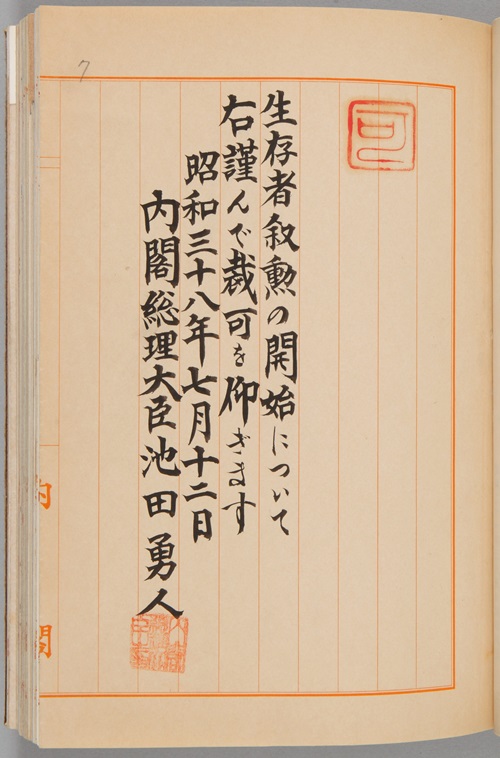 7
可
生存者叙勲の開始について
右謹んで裁可を仰ぎます
昭和三十八年七月十二日
内閣総理大臣池田勇人
内
閣